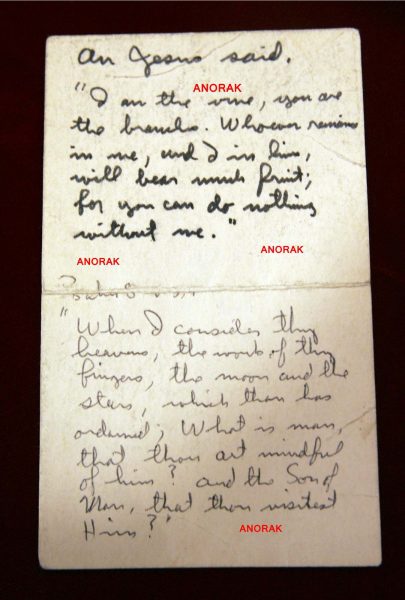 As Jesus said.
ANORAK
"I am the vine, you are
the branches. Whoever remains
in me, and I in him,
will bear much fruit;
for you can do nothing
without me."
ANORAK
ANORAK
Psalms 8
"When I consider thy
heavens, the work of thy
fingers, the moon and the
stars, which thou has
ordained; What is man,
that thou art mindful
of him? and the Son of
Man, that thou visitest
Him?"
ANORAK